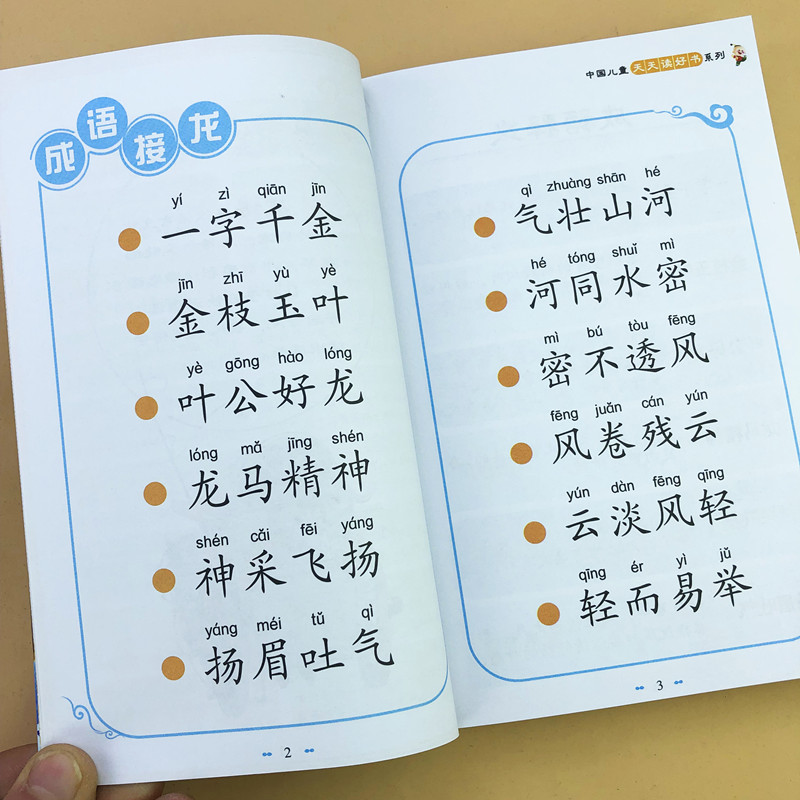 成语接龙
yí zì qiān jīn
一字千金
jīn zhī yù yè
金枝玉叶
yè gōng hào lóng
叶公好龙
lóng mǎ jīng shén
龙马精神
shén cǎi fēi yáng
神采飞扬
yáng méi tǔ qì
扬眉吐气
2
中国儿童天天读好书系列
qì zhuàng shān hé
气壮山河
hé tóng shuǐ mì
河同水密
mì bú tòu fēng
密不透风
fēng juǎn cán yún
风卷残云
yún dàn fēng qīng
云淡风轻
qīng ér yì jǔ
轻而易举
3